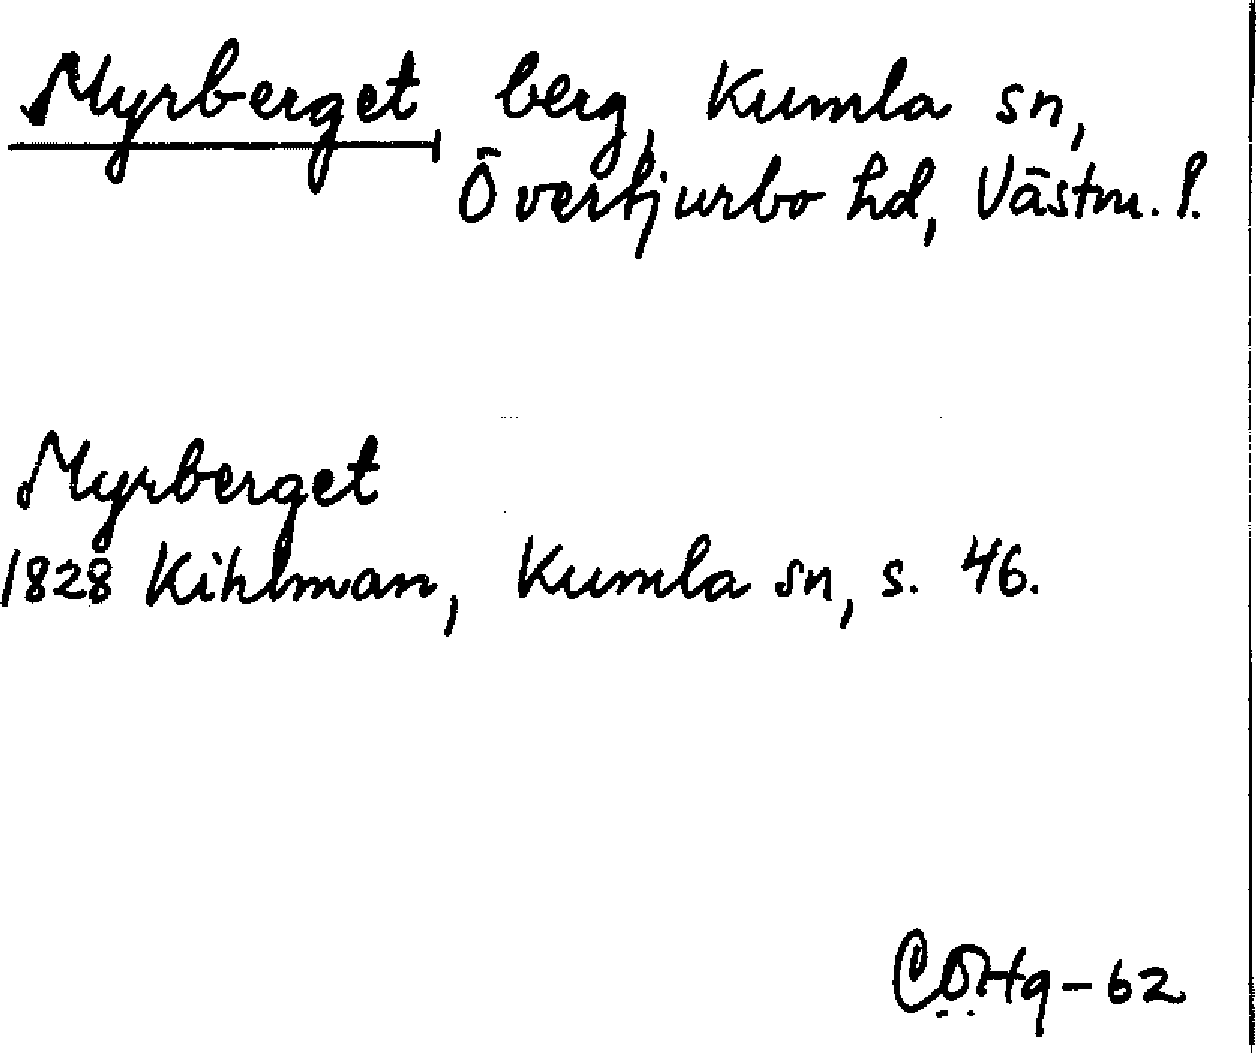 Myrberget, berg, Kumla sn,
Övertjurbo hd, Västm. l.
Myrberget
1828 Kihlman, Kumla sn, s. 46.